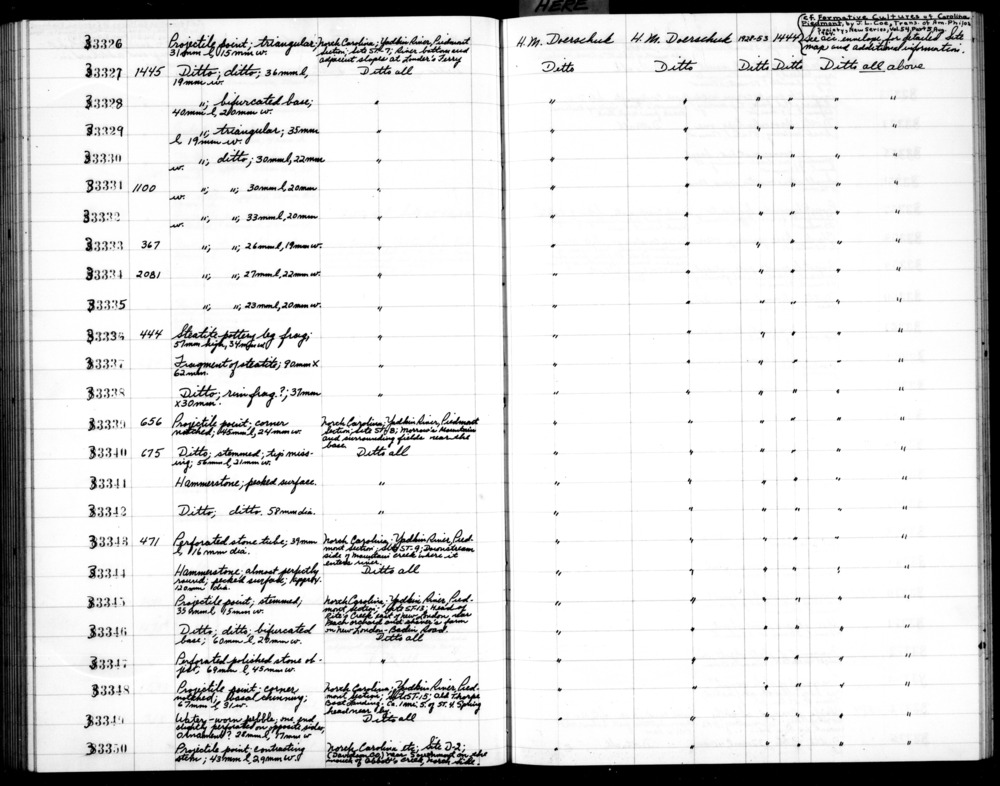 HERE
33326 Projectile point; triangular; North Carolina; Yadkin River, Piedmont H.M. Doerschuk H.M. Doerschuk 1928-53 14444 cf. Formative Cultures of Carolina
31mm l, 15mm w. section; Site ST-7; River bottom and Piedmont, by J.L. Coe, Trans. of Am. Philos.
adjacent slopes at Lowder's Ferry Society; New Series, Vol 54 Part 5, Aug
1964. See acc. envelope for detailed site
map and additional information.
33327 1445 Ditto; ditto; 36mm l, Ditto all Ditto Ditto Ditto Ditto Ditto all above
19mm w.
33328 "; bifurcated base; " " " " " " "
40mm l, 20mm w.
33329 "; triangular; 35mm " " " " " " "
l, 19mm w.
33330 "; ditto; 30mm l, 22mm " " " " " " "
w.
33331 1100 "; "; 30mm l, 20mm " " " " " " "
w.
33332 "; "; 33mm l, 20mm " " " " " " "
w.
33333 367 "; "; 26mm l, 19mm w. " " " " " " "
33334 2081 "; "; 27mm l, 22mm w. " " " " " " "
33335 "; "; 23mm l, 20mm w. " " " " " " "
33336 444 Steatite pottery leg frag; " " " " " " "
57mm high, 34mm w.
33337 Fragment of steatite; 90mm X " " " " " " "
62mm.
33338 Ditto; rim frag.?; 37mm " " " " " " "
x 30mm.
33339 656 Projectile point; corner North Carolina; Yadkin River, Piedmont " " " " " "
notched; 45mm l, 24mm w. section; Site ST-8; Morrow's Mountain
and surrounding fields near the
base.
33340 675 Ditto; stemmed; tip miss- Ditto all " " " " " "
ing; 56mm l, 21mm w.
33341 Hammerstone; pecked surface. " " " " " " "
33342 Ditto; ditto. 58mm dia. " " " " " " "
33343 471 Perforated stone tube; 39mm North Carolina; Yadkin River, Pied- " " " " " "
l, 16mm dia. mont section; Site ST-9; Downstream
side of mountain creek where it
enters river.
33344 Hammerstone; almost perfectly Ditto all " " " " " "
round; pecked surface;
120mm dia.
33345 Projectile point; stemmed; North Carolina; Yadkin River, Pied- " " " " " "
35mm l, 15mm w. mont section; Site ST-13; Head of
Creek east of New London near
Peach orchard and farm
on New London-Badin Road.
33346 Ditto; ditto; bifurcated Ditto all " " " " " "
base; 60mm l, 29mm w.
33347 Perforated polished stone ob- " " " " " " "
ject, 69mm l, 45mm w.
33348 Projectile point; corner North Carolina; Yadkin River, Pied- " " " " " "
notched; basal thinning; mont section; Site ST-15; Old Tharpe
67mm l, 31 w. Boat Landing. Ca. 1mi. S. of ST. 4. Spring
head near by.
33349 Water-worn pebble; one end Ditto all " " " " " "
slightly perforated on opposite sides,
Ornament? 28mm l, 17mm w.
33350 Projectile point; contracting North Carolina etc; Site D-2; " " " " " "
stem; 43mm l, 29mm w. (Davidson Co.) near Southmont on the
mouth of Abbott's creek, north side.